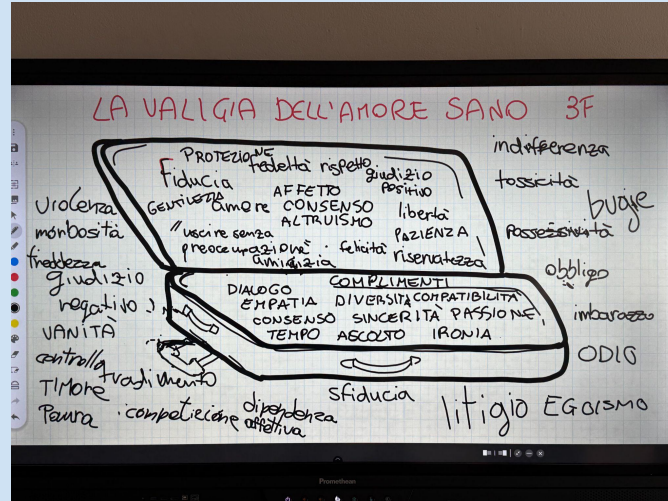 LA VALIGIA DELL'AMORE SANO 3F
PROTEZIONE
fedeltà rispetto
Fiducia
giudizio
positivo
AFFETTO
GENTILEZZA
amore CONSENSO
libertà
ALTRUISMO
"uscire senza
PAZIENZA
preoccupazioni"
felicità
riservatezza
amicizia
COMPLIMENTI
DIALOGO
EMPATIA DIVERSITÀ COMPATIBILITÀ
CONSENSO SINCERITÀ PASSIONE
TEMPO ASCOLTO IRONIA
violenza
morbosità
freddezza
giudizio
negativo
VANITÀ
controllo
tradimento
TIMORE
Paura
competizione
dipendenza
affettiva
sfiducia
litigio
EGOISMO
indifferenza
tossicità
bugie
Possessività
obbligo
imbarazzo
ODIO
Promethean